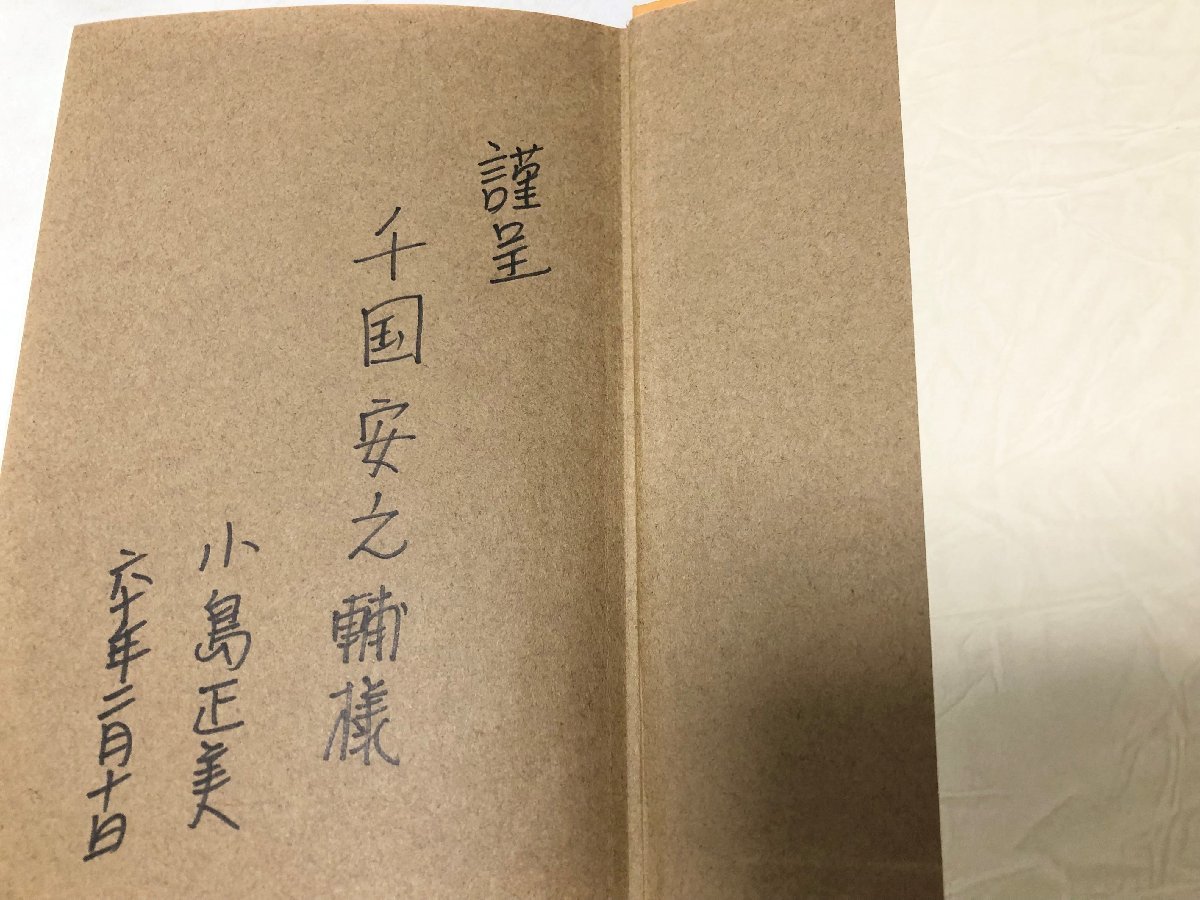 謹呈
千国安之輔様
小島正美
六十年二月十日